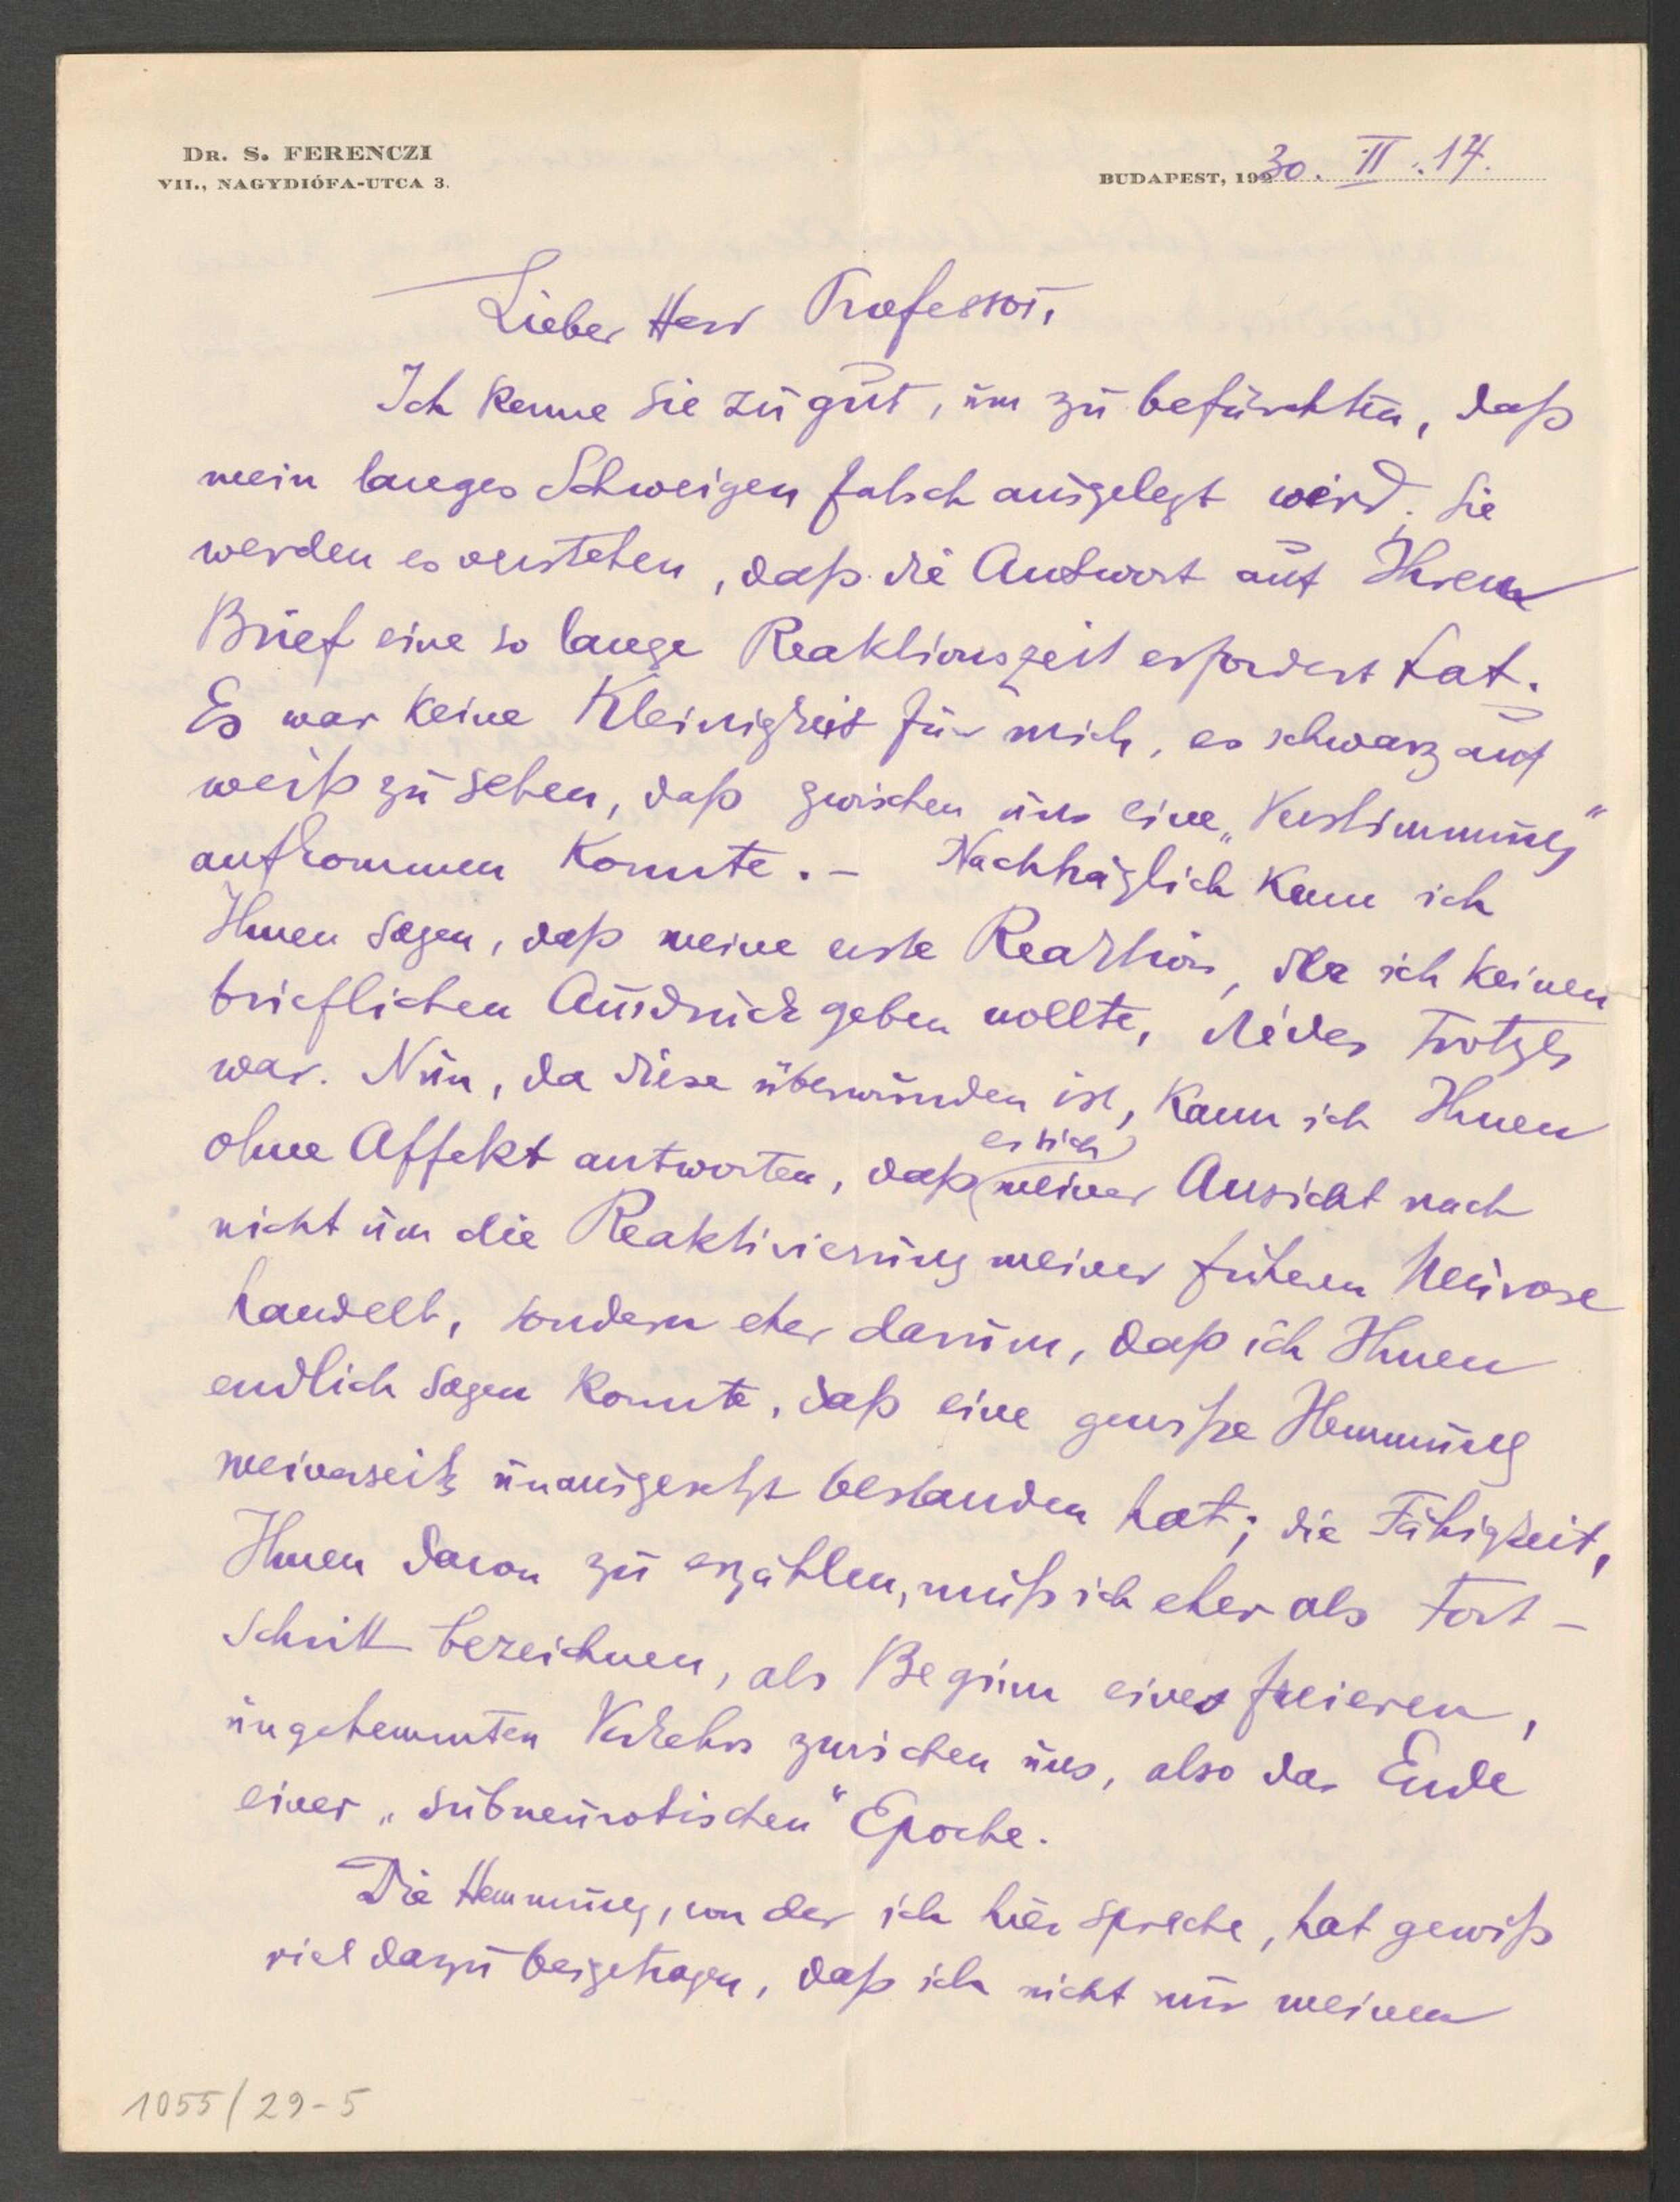 DR. S. FERENCZI
VII., NAGYDIÓFA-UTCA 3.
BUDAPEST, 192 30. II. 14.
Lieber Herr Professor,
Ich kenne Sie zu gut, um zu befürchten, daß
mein langes Schweigen falsch ausgelegt wird. Sie
werden es verstehen, daß die Antwort auf Ihren
Brief eine so lange Reaktionszeit erfordert hat.
Es war keine Kleinigkeit für mich, es schwarz auf
weiß zu sehen, daß zwischen uns eine „Verstimmung“
aufkommen konnte. – Nachträglich kann ich
Ihnen sagen, daß meine erste Reaktion, der ich keinen
brieflichen Ausdruck geben wollte, die des Trotzes
war. Nun, da diese überwunden ist, kann ich Ihnen
ohne Affekt antworten, daß es sich meiner Ansicht nach
nicht um die Reaktivierung meiner frühern Neurose
handelt, sondern eher darum, daß ich Ihnen
endlich sagen konnte, daß eine gewiße Hemmung
meinerseits unausgesetzt bestanden hat; die Fähigkeit,
Ihnen davon zu erzählen, muß ich eher als Fort-
schritt bezeichnen, als Beginn eines freieren,
ungehemmten Verkehrs zwischen uns, also das Ende
einer „subneurotischen“ Epoche.
Die Hemmung, von der ich hier spreche, hat gewiß
viel dazu beigetragen, daß ich nicht nur meinen
1055/29-5